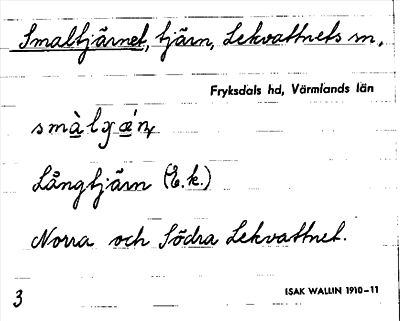 Smaltjärnet, tjärn, Lekvattnets sn,
Fryksdals hd, Värmlands län
Långtjärn (E.k.)
Norra och Södra Lekvattnet.
3
ISAK WALLIN 1910-11